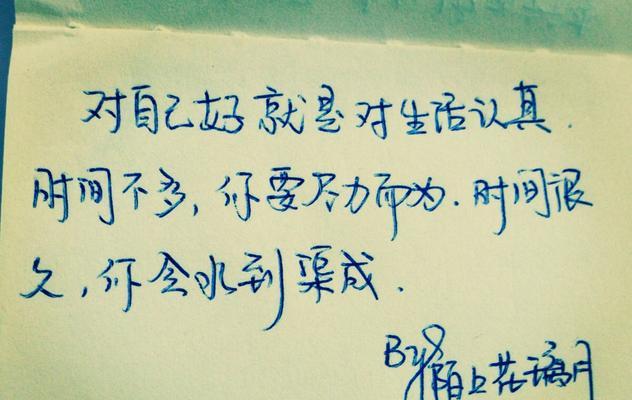 对自己好就是对生活认真.
时间不多,你要尽力而为.时间很
久,你会水到渠成.
By
陌上花璃月